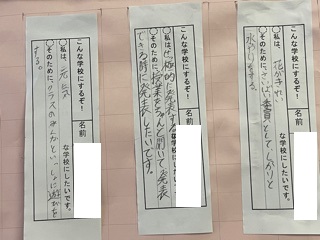 こんな学校にするぞ!
名前
○私は、花がきれい
な学校にしたいです。
○そのために、さいばい委員としてしっかりと
水やりをする。
こんな学校にするぞ!
名前
○私は、せっ極的に発表する
な学校にしたいです。
○そのために、授業をちゃんと聞いて発表
できる時に発表したいです。
こんな学校にするぞ!
名前
○私は、元気
な学校にしたいです。
○そのために、クラスのみんなといっしょに遊びを
する。